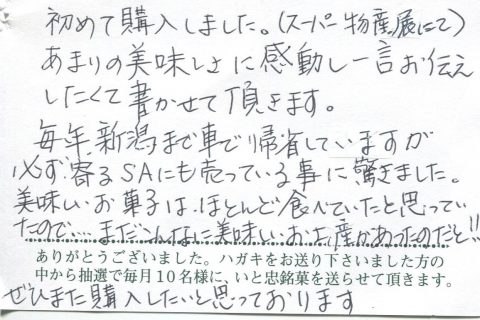 初めて購入しました。(スーパー物産展にて)
あまりの美味しさに感動し一言お伝え
したくて書かせて頂きます。
毎年新潟まで車で帰省していますが
必ず寄るSAにも売っている事に驚きました。
美味しいお菓子は、ほとんど食べていたと思ってい
たので…まだこんなに美味しいお土産があったのだと!!
ありがとうございました。ハガキをお送り下さいました方の
中から抽選で毎月10名様に、いと忠銘菓を送らせて頂きます。
ぜひまた購入したいと思っております